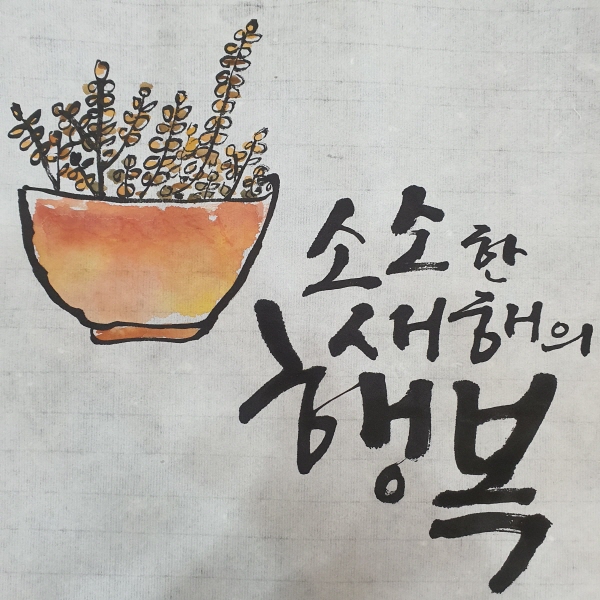 소소한
새해의
행복